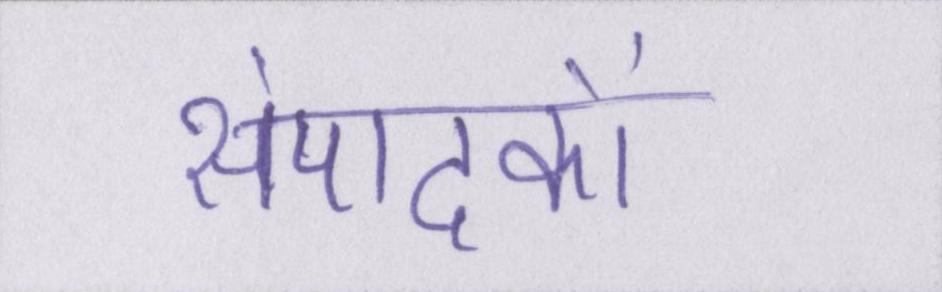 संपादकों